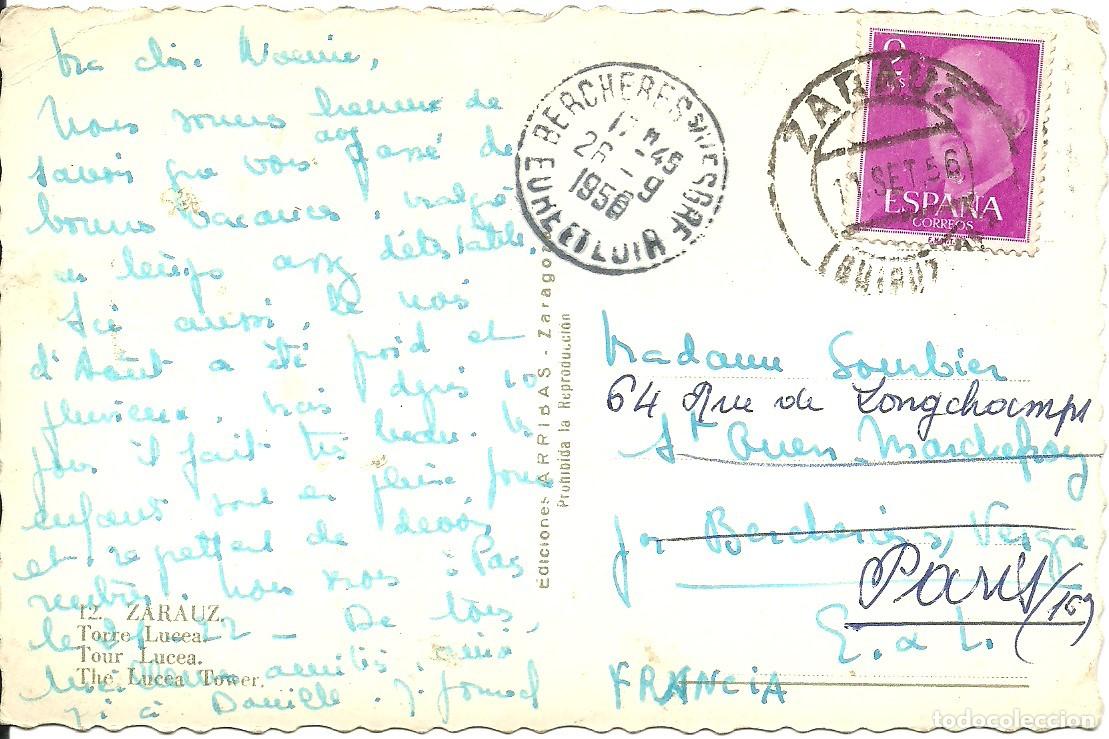 Ma chère Noémie,
Nous sommes heureux de
savoir que vous avez passé de
bonnes vacances, malgré
un temps assez détestable.
Ici aussi, le mois
d'Août a été froid et
pluvieux, mais depuis 10
jours il fait très beau. Les
enfants sont en pleine forme
et regrettent de devoir
rentrer. nous
le 21 - 22 - De tous,
amitiés, ainsi
à Danièle.
12. ZARAUZ.
Torre Lucea.
Tour Lucea.
The Lucea Tower.
Ediciones ARRIBAS - Zaragoza
Prohibida la Reproducción
BERCHERES S/VESGRE
17 H 45
26 - 9
1956
EURE ET LOIR
ZARAUZ
11 SET. 56
(GUIPUZ
2
PTS
ESPAÑA
CORREOS
Madame Sourbier
64 Rue de Longchamps
St Ouen Marchefroy
par Berchères s/ Vesgre
Paris (16)
E. & L.
FRANCIA
todocoleccion